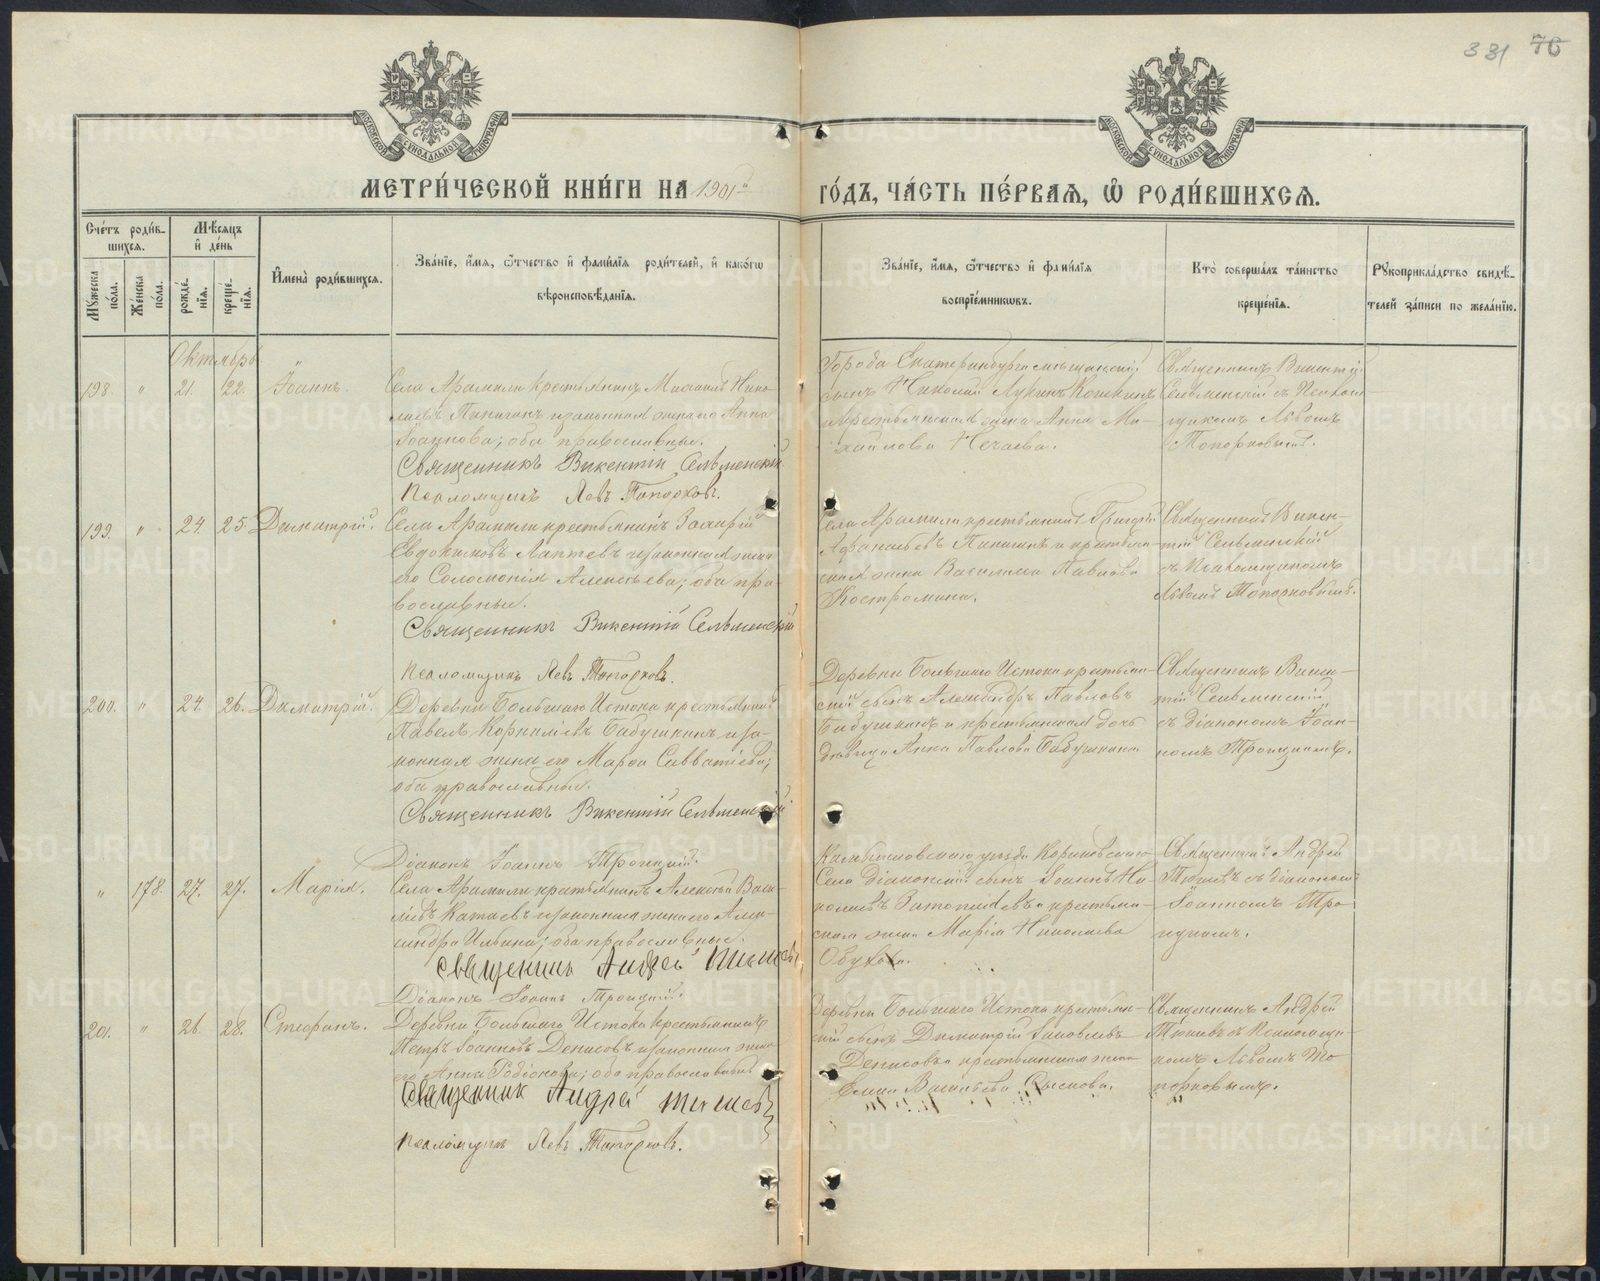 331 76
МОСКОВСКОЙ СУНОДАЛЬНОЙ ТИПОГРАФІИ
МОСКОВСКОЙ СУНОДАЛЬНОЙ ТИПОГРАФІИ
МЕТРИ́ЧЕСКОЙ КНИ́ГИ НА 1901й ГО́ДЪ, ЧА́СТЬ ПЕ́РВАЯ, Ѿ РОДИ́ВШИХСЯ.
Сче́тъ роди́вшихся.
Мѣ́сяцъ и҆ де́нь
Мꙋ́жеска по́ла.
Же́нска по́ла.
рожде́нїя.
креще́нїя.
И҆мена̀ роди́вшихся.
Зва́нїе, и҆́мя, ѻ҆́тчество и҆ фамѝлїя роди́телей, и҆ како́гѡ
вѣроисповѣ́данїя.
Зва́нїе, и҆́мя, ѻ҆́тчество и҆ фами́лїя
воспрїе́мникѡвъ.
Кто̀ соверша́лъ та́инство
креще́нїя.
Рꙋкоприкла́дство свидѣ́-
телей за́писи по жела́нїю.
Октябрь
198. " 21. 22. Іоаннъ.
Села Арамили крестьянинъ Михаилъ Нико-
лаевъ Пинигинъ и законная жена его Анна
Іоаннова; оба православные.
Священникъ Викентій Сельменскій
Псаломщикъ Левъ Топорковъ.
Города Екатеринбурга мѣщанскій
сынъ Николай Лукинъ Кошкинъ
и крестьянская жена Анна Ми-
хайлова Нечаева.
Священникъ Викентій
Сельменскій съ Псалом-
щикомъ Львомъ
Топорковымъ.
199. " 24. 25. Димитрій.
Села Арамили крестьянинъ Захарій
Евдокимовъ Лаптевъ и законная жена
его Соломонія Алексѣева; оба пра-
вославные.
Священникъ Викентій Сельменскій
Псаломщикъ Левъ Топорковъ.
Села Арамили крестьянинъ Григорій
Афанасьевъ Пинигинъ и крестьян-
ская жена Василиса Павлова
Костромина.
Священникъ Викен-
тій Сельменскій
съ Псаломщикомъ
Львомъ Топорковымъ.
200. " 24. 26. Димитрій.
Деревни Большаго Истока крестьянинъ
Павелъ Корниліевъ Бабушкинъ и за-
конная жена его Марѳа Савватіева;
оба православные.
Священникъ Викентій Сельменскій
Діаконъ Іоаннъ Троицкій.
Деревни Большаго Истока крестьян-
скій сынъ Александръ Павловъ
Бабушкинъ и крестьянская дочь
дѣвица Анна Павлова Бабушкина
Священникъ Викен-
тій Сельменскій
съ Діакономъ Іоан-
номъ Троицкимъ.
" 178. 27. 27. Марія.
Села Арамили крестьянинъ Алексѣй Васи-
льевъ Катаевъ и законная жена его Алек-
сандра Ильина; оба православные.
Священникъ Андрей
Діаконъ Іоаннъ Троицкій.
Камышловскаго уѣзда
Села діаконскій сынъ Іоаннъ Ни-
колаевъ и крестьян-
ская жена Марія Николаева
Обухова.
Священникъ Андрей
съ діакономъ
Іоанномъ Тро-
ицкимъ.
201. " 26. 28. Стефанъ.
Деревни Большаго Истока крестьянинъ
Петръ Іоанновъ Денисовъ и законная жена
его Анна Родіонова; оба православные
Священник Андрей
Псаломщикъ Левъ Топорковъ.
Деревни Большаго Истока крестьян-
скій сынъ Димитрій Іаковлевъ
Денисовъ и крестьянская жена
Васильева
Священникъ Андрей
съ Псаломщи-
комъ Львомъ То-
порковымъ.
METRIKI.GASO-URAL.RU